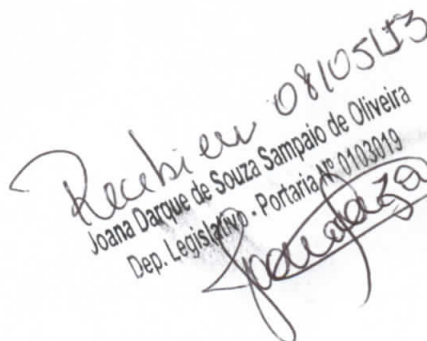 Recebi em 08/05/13
Joana Darque de Souza Sampaio de Oliveira
Dep. Legislativo - Portaria Nº 0103019